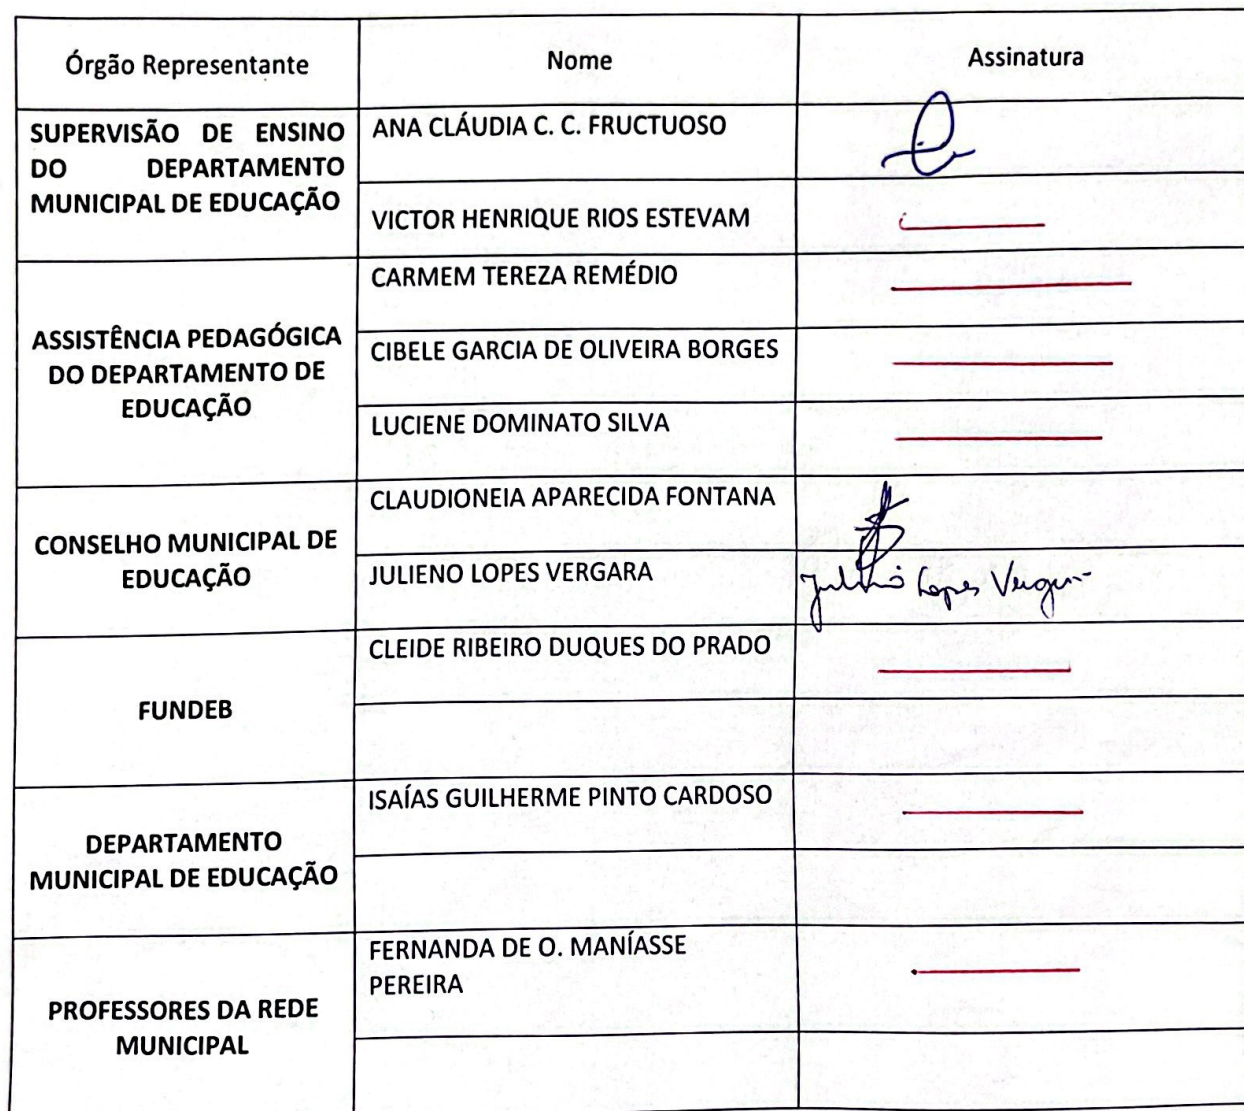 Órgão Representante
Nome
Assinatura
SUPERVISÃO DE ENSINO
DO DEPARTAMENTO
MUNICIPAL DE EDUCAÇÃO
ANA CLÁUDIA C. C. FRUCTUOSO
VICTOR HENRIQUE RIOS ESTEVAM
ASSISTÊNCIA PEDAGÓGICA
DO DEPARTAMENTO DE
EDUCAÇÃO
CARMEM TEREZA REMÉDIO
CIBELE GARCIA DE OLIVEIRA BORGES
LUCIENE DOMINATO SILVA
CONSELHO MUNICIPAL DE
EDUCAÇÃO
CLAUDIONEIA APARECIDA FONTANA
JULIENO LOPES VERGARA
Julieno Lopes Vergara
FUNDEB
CLEIDE RIBEIRO DUQUES DO PRADO
DEPARTAMENTO
MUNICIPAL DE EDUCAÇÃO
ISAÍAS GUILHERME PINTO CARDOSO
PROFESSORES DA REDE
MUNICIPAL
FERNANDA DE O. MANÍASSE
PEREIRA